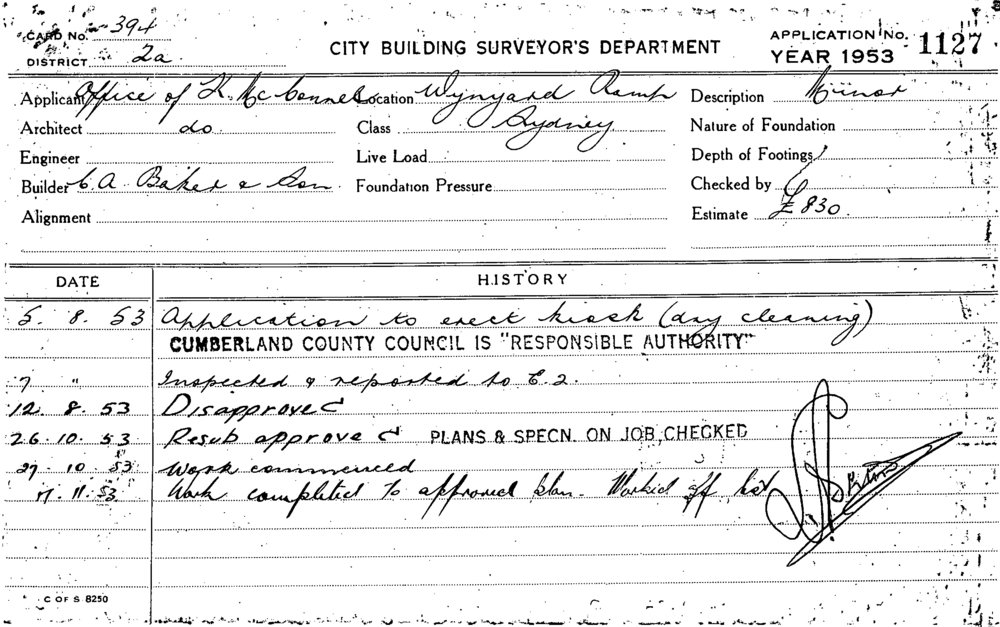 CARD No. 394
DISTRICT 2a
CITY BUILDING SURVEYOR'S DEPARTMENT
APPLICATION No. 1127
YEAR 1953
Applicant Office of K. McConnel Location Wynyard Ramp Description Minor
Architect do Class Sydney Nature of Foundation
Engineer Live Load Depth of Footings
Builder C. A. Baker & Son Foundation Pressure Checked by
Alignment Estimate £830.
DATE HISTORY
5. 8. 53 Application to erect kiosk (dry cleaning)
CUMBERLAND COUNTY COUNCIL IS "RESPONSIBLE AUTHORITY"
7 " Inspected & reported to E.2.
12. 8. 53 Disapproved
26. 10. 53 Resub approved PLANS & SPECN. ON JOB CHECKED
27. 10. 53 Work commenced
17. 11. 53 Work completed to approved plan. Worked off list
C OF S 8250